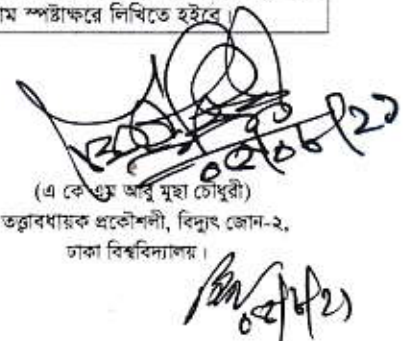 াম স্পষ্টাক্ষরে লিখিতে হইবে।
০২/০৮/২১
(এ কে এম আবু মুছা চৌধুরী)
তত্ত্বাবধায়ক প্রকৌশলী, বিদ্যুৎ জোন-২,
ঢাকা বিশ্ববিদ্যালয়।
০২/৮/২১